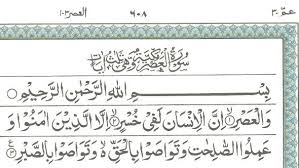 عـمّ ٣٠ ٦٠٨ العصر ١٠٣
سُورَةُ الْعَصْرِ مَكِّيَّةٌ وَهِيَ ثَلٰثُ اٰيَاتٍ
بِسْمِ اللّٰهِ الرَّحْمٰنِ الرَّحِيْمِ
وَالْعَصْرِ ۝١ اِنَّ الْاِنْسَانَ لَفِيْ خُسْرٍ ۝٢ اِلَّا الَّذِيْنَ اٰمَنُوْا وَ
عَمِلُوا الصّٰلِحٰتِ وَتَوَاصَوْا بِالْحَقِّ وَتَوَاصَوْا بِالصَّبْرِ ۝٣ ع